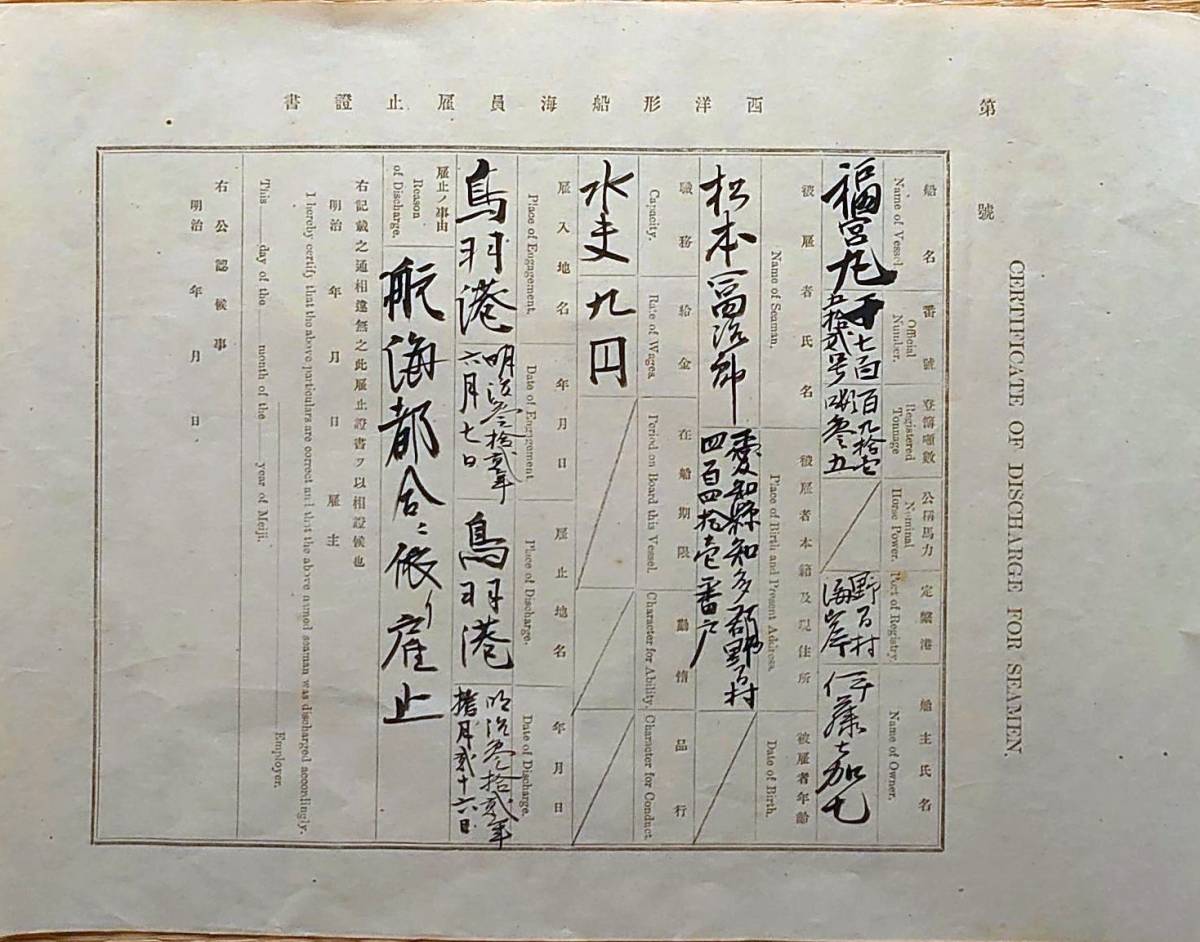 CERTIFICATE OF DISCHARGE FOR SEAMEN.
第 號
西洋形船海員雇止證書
船名
Name of Vessel
福宮丸
番號
Official Number.
千七百
五拾貳号
登簿噸數
Registered Tonnage
百九拾壱
噸参五
公稱馬力
Nominal Horse Power.
定繫港
Port of Registry.
野間村
海岸
船主氏名
Name of Owner.
伊藤嘉七
被雇者氏名
Name of Seaman.
松本富治郎
被雇者本籍及現住所
Place of Birth and Present Address.
愛知縣知多郡野間村
四百四拾壱番戸
被雇者年齡
Date of Birth.
職務
Capacity.
水夫
給金
Rate of Wages.
九円
在船期限
Period on Board this Vessel.
勤惰
Character for Ability.
品行
Character for Conduct
雇入地名
Place of Engagement.
鳥羽港
年月日
Date of Engagement.
明治参拾貳年
六月七日
雇止地名
Place of Discharge.
鳥羽港
年月日
Date of Discharge.
明治参拾貳年
拾月貳十六日
雇止ノ事由
Reason of Discharge.
航海都合ニ依り雇止
右記載之通相違無之此雇止證書ヲ以相證候也
明治 年 月 日 雇主
I hereby certify that the above particulars are correct and that the above named seaman was discharged accordingly.
Employer.
This day of the month of the year of Meiji.
右公認候事
明治 年 月 日